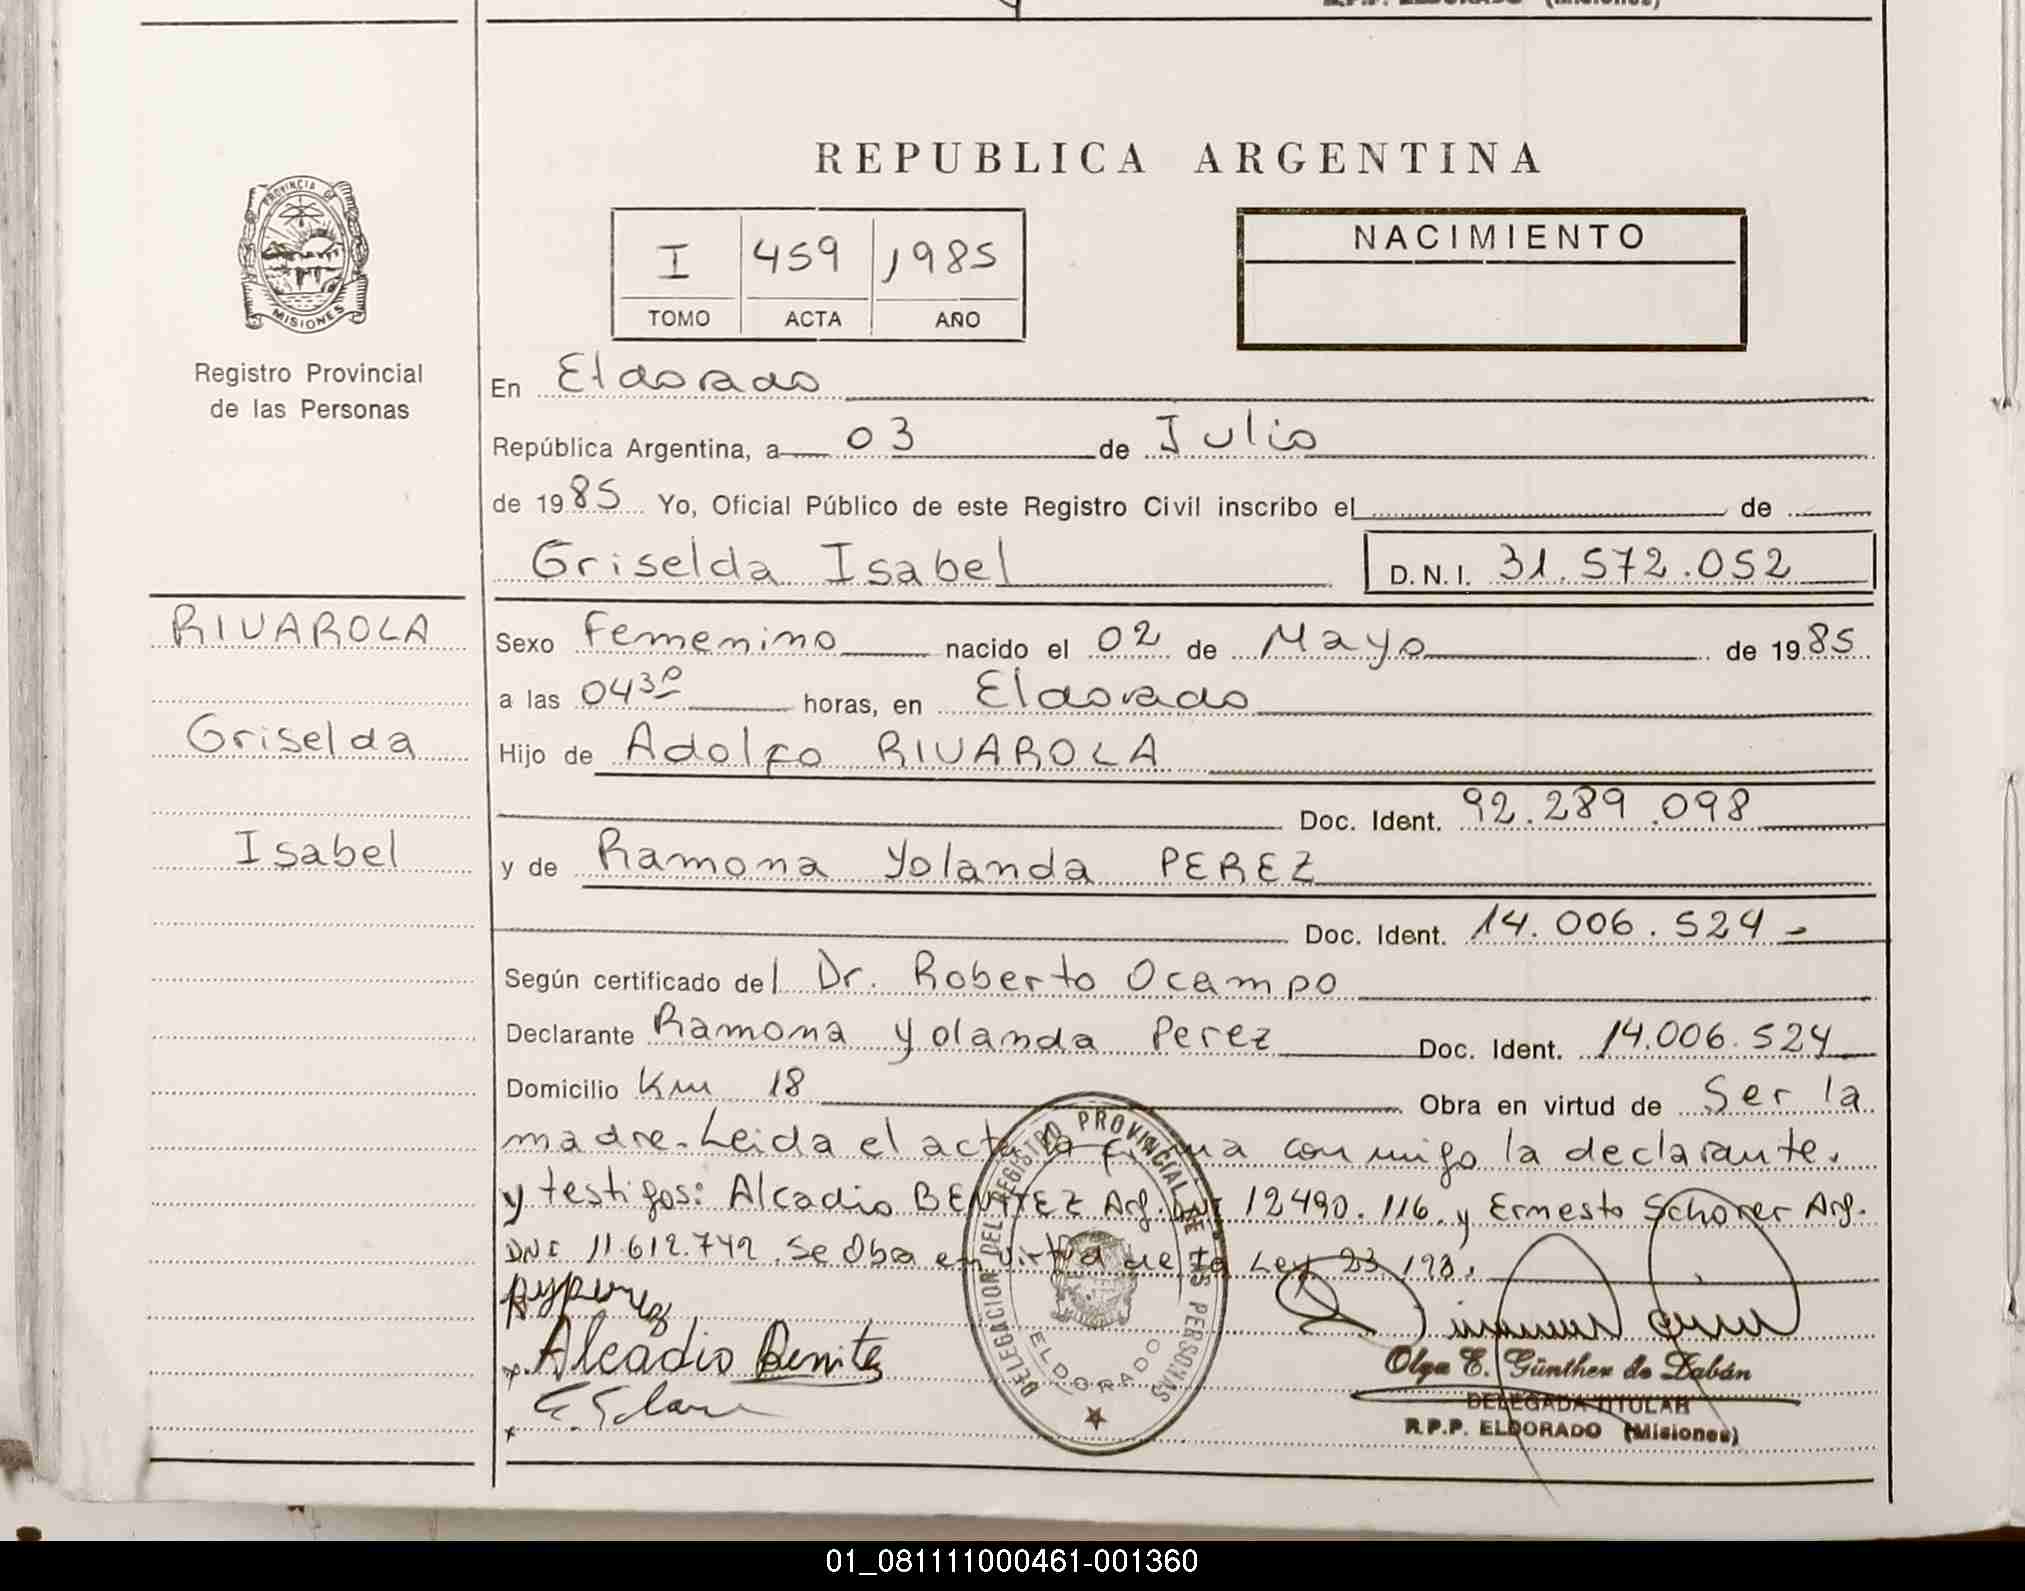 R.P.P. ELDORADO (Misiones)
REPUBLICA ARGENTINA
PROVINCIA DE
MISIONES
Registro Provincial
de las Personas
I 459 1985
TOMO ACTA AÑO
NACIMIENTO
En Eldorado
República Argentina, a 03 de Julio
de 1985 Yo, Oficial Público de este Registro Civil inscribo el de
Griselda Isabel D.N.I. 31.572.052
RIVAROLA
Griselda
Isabel
Sexo Femenino nacido el 02 de Mayo de 1985
a las 0430 horas, en Eldorado
Hijo de Adolfo RIVAROLA
Doc. Ident. 92.289.098
y de Ramona Yolanda PEREZ
Doc. Ident. 14.006.524-
Según certificado del Dr. Roberto Ocampo
Declarante Ramona Yolanda Perez Doc. Ident. 14.006.524
Domicilio Km 18 Obra en virtud de Ser la
madre. Leida el acta la firma conmigo la declarante.
y testigos: Alcadio BENITEZ Arg. DNI 12490.116 y Ernesto Schorer Arg.
DNI 11.612.742. Se Oba en virtud de la Ley 23.193.
Alcadio Benitez
DELEGACION DEL REGISTRO PROVINCIAL DE LAS PERSONAS
ELDORADO
Olga E. Günther de Dabán
DELEGADA TITULAR
R.P.P. ELDORADO (Misiones)
01_081111000461-001360